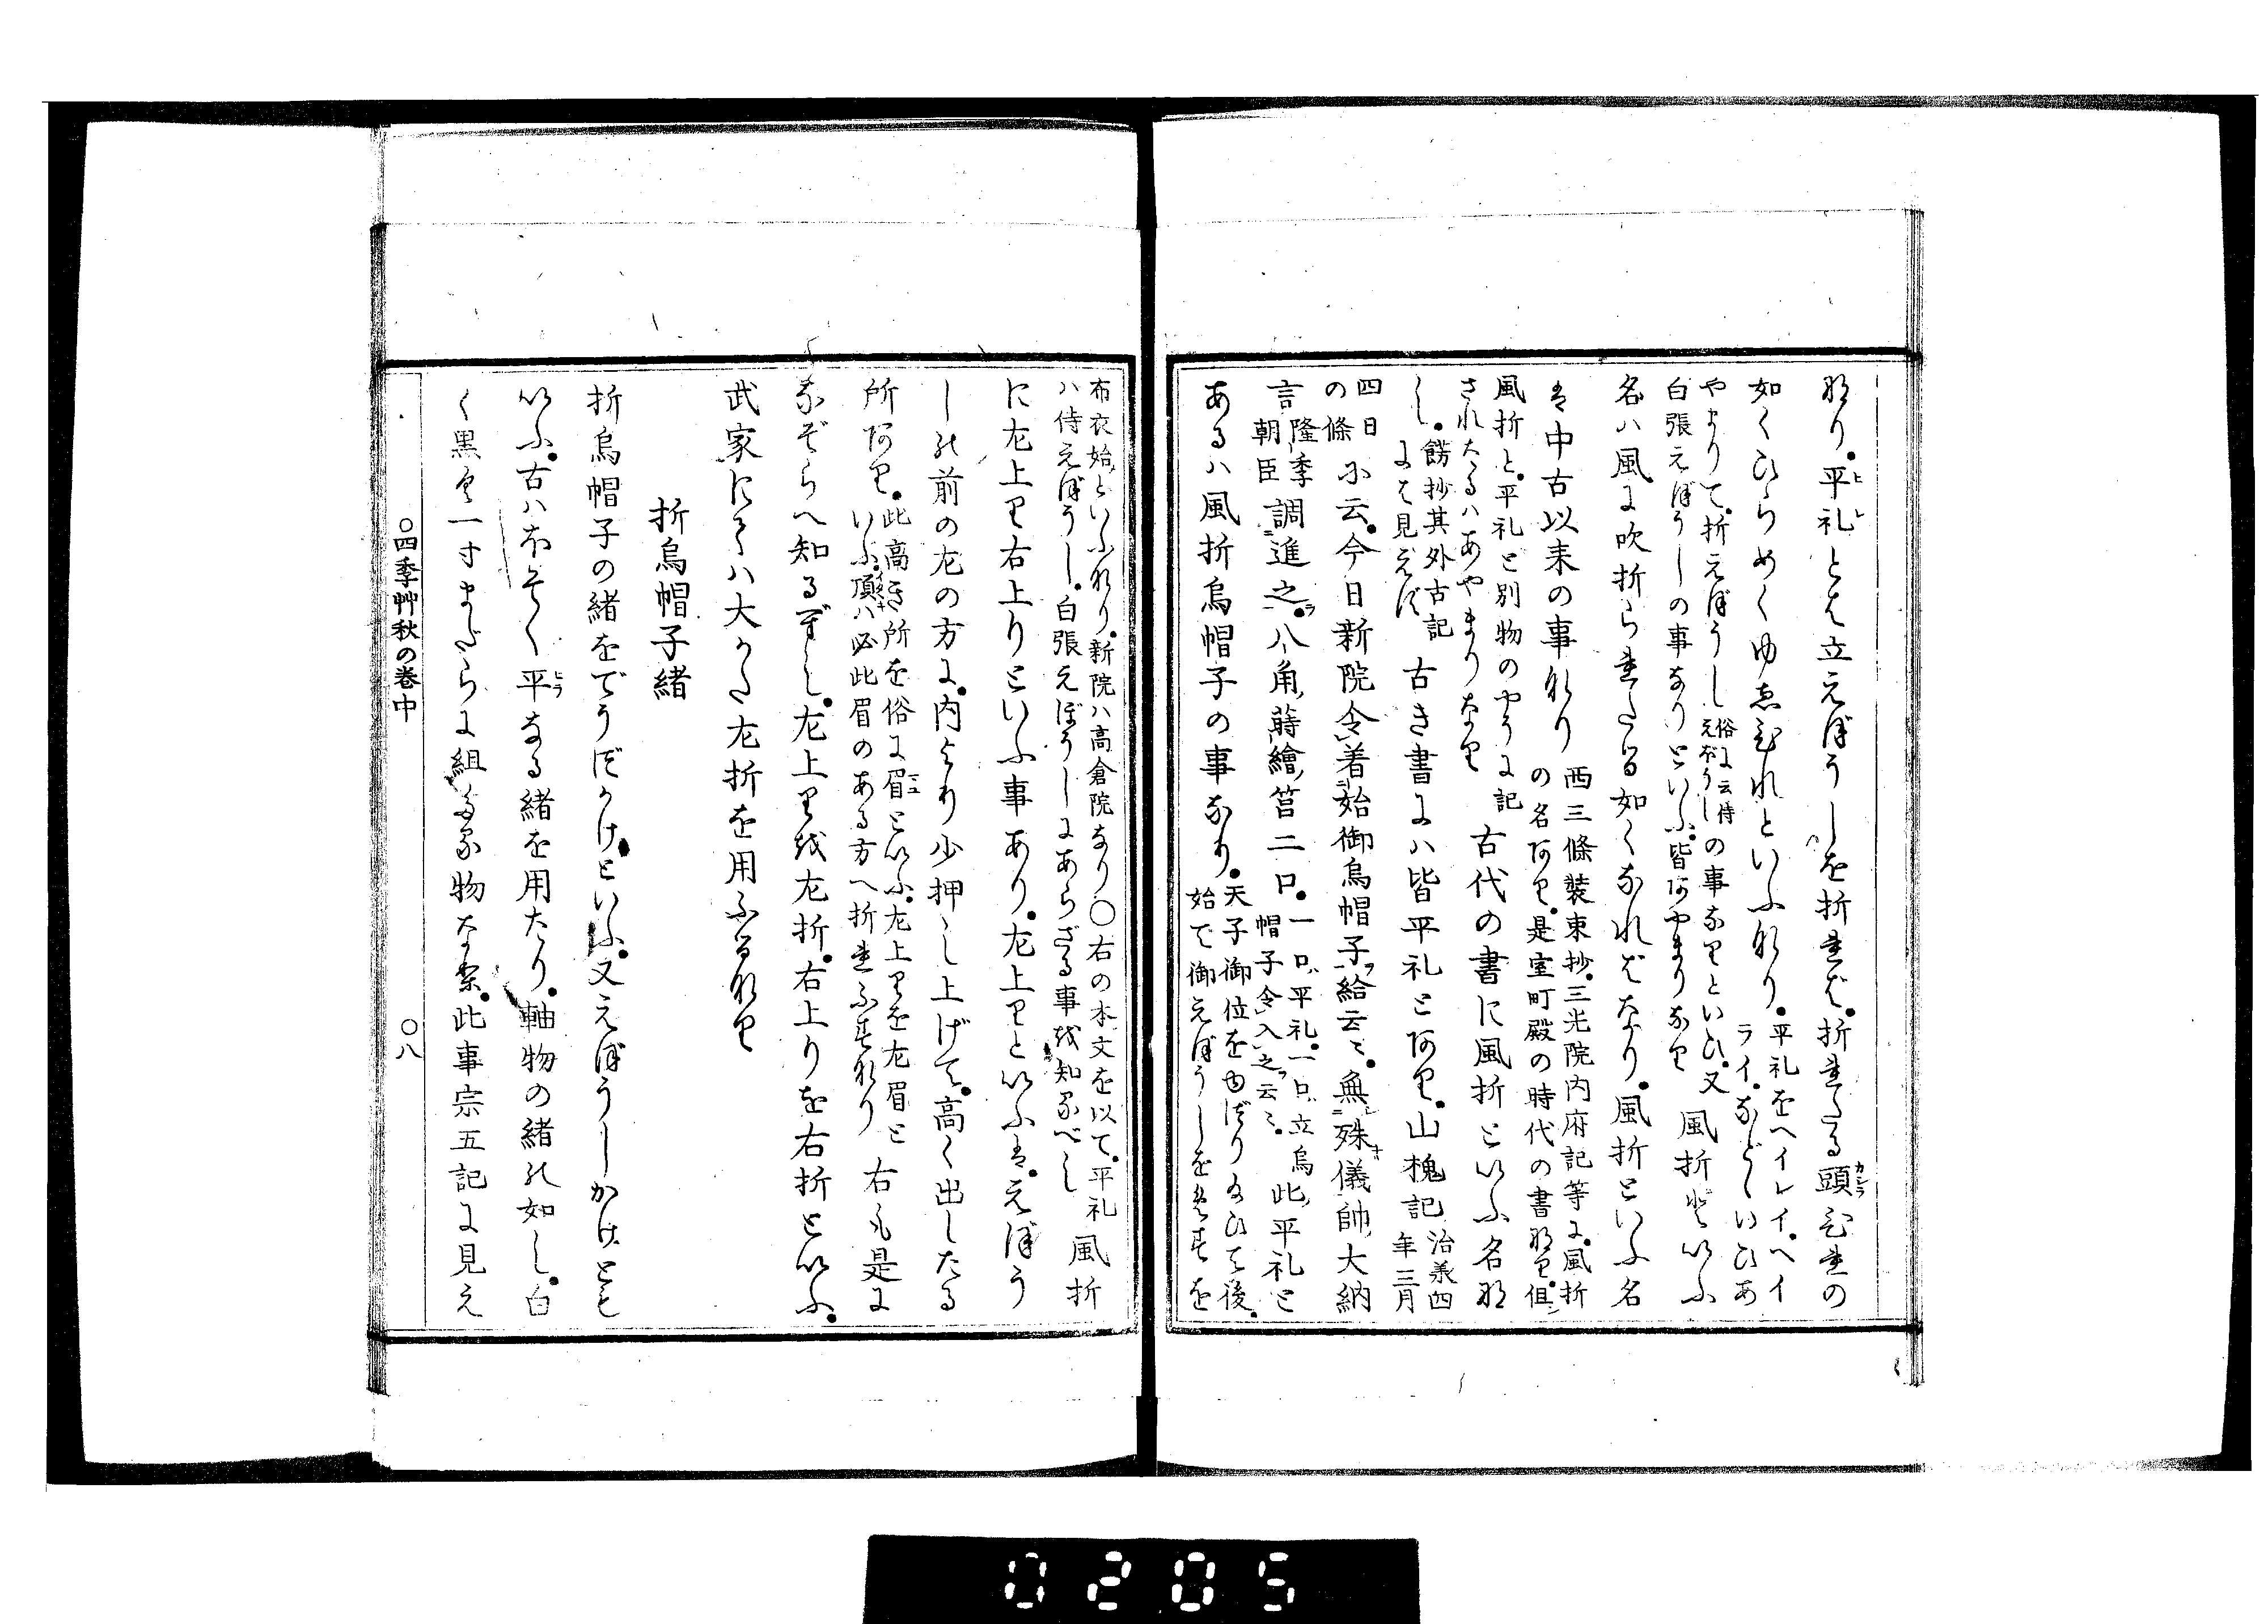 なり。平礼とは立えぼうしを折れば。折れたる頭ひれの
如くひらめくゆゑひれといふなり。平礼をヘイレイ。ヘイ
ライ。などゝいひあ
やまりて。折えぼうし俗に云侍
えぼうしの事なりといひ。又
白張えぼうしの事なりといふ。皆あやまりなり 風折といふ
名ハ風に吹折られたる如くなればなり。風折といふ名
は中古以来の事なり 西三條装束抄。三光院内府記等に。風折
の名あり。是室町殿の時代の書なり。但
風折と。平礼と別物のやうに記
されたるハあやまりなり 古代の書に風折といふ名な
し。餝抄其外古記
にも見えず 古き書にハ皆平礼とあり。山槐記 治承四
年三月
四日
の條 に云。今日新院令着始御烏帽子給云々。無殊儀帥大納
言 隆季
朝臣 調進之。八角蒔繪筥二口。一口平礼。一口立烏
帽子令入之云々。 此平礼と
あるハ風折烏帽子の事なり。天子御位をゆずり給ひて後。
始て御えぼうしをめすを
布衣始といふなり。新院ハ高倉院なり○右の本文を以て。平礼
ハ侍えぼうし。白張えぼうしにあらざる事を知るべし 風折
に左上り右上りといふ事あり。左上りといふは。えぼう
しの前の左の方に。内より少押し上げて。高く出したる
所あり。此高き所を俗に眉といふ。左上りを左眉と
いふ。頂ハ必此眉のある方へ折れふすなり 右も是に
なぞらへ知るべし。左上りを左折。右上りを右折といふ。
武家にてハ大かた左折を用ふるなり
折烏帽子緒
折烏帽子の緒をてうずかけ。といふ。又えぼうしかけとも
いふ。古ハほそく平なる緒を用たり。軸物の緒の如し。白
く黒く一寸まだらに組たる物なり。此事宗五記に見え
○四季艸秋の巻中
○八
0205